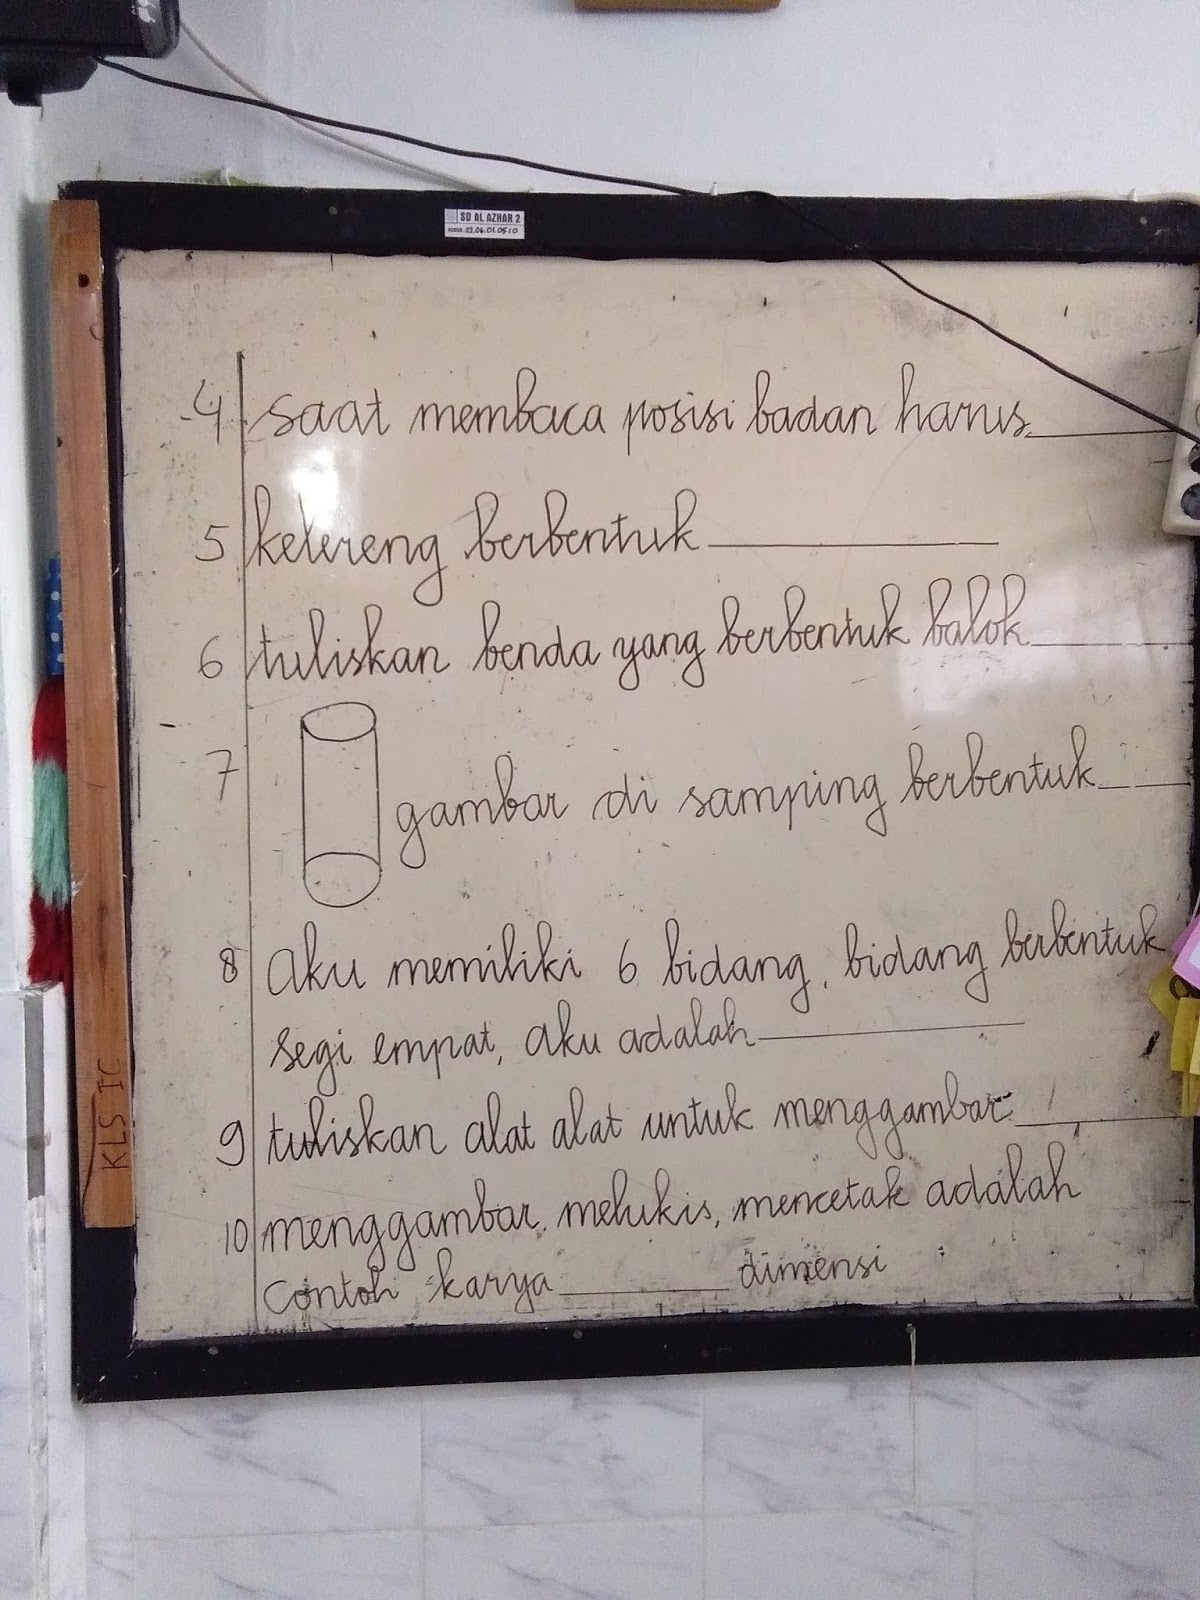 SD AL AZHAR 2
02.06.01.05.10
4 saat membaca posisi badan harus ______
5 kelereng berbentuk ______
6 tuliskan benda yang berbentuk balok ______
7 gambar di samping berbentuk ______
8 Aku memiliki 6 bidang, bidang berbentuk
segi empat, aku adalah ______
9 tuliskan alat alat untuk menggambar ______
10 menggambar, melukis, mencetak adalah
Contoh karya ______ dimensi
KLS IC